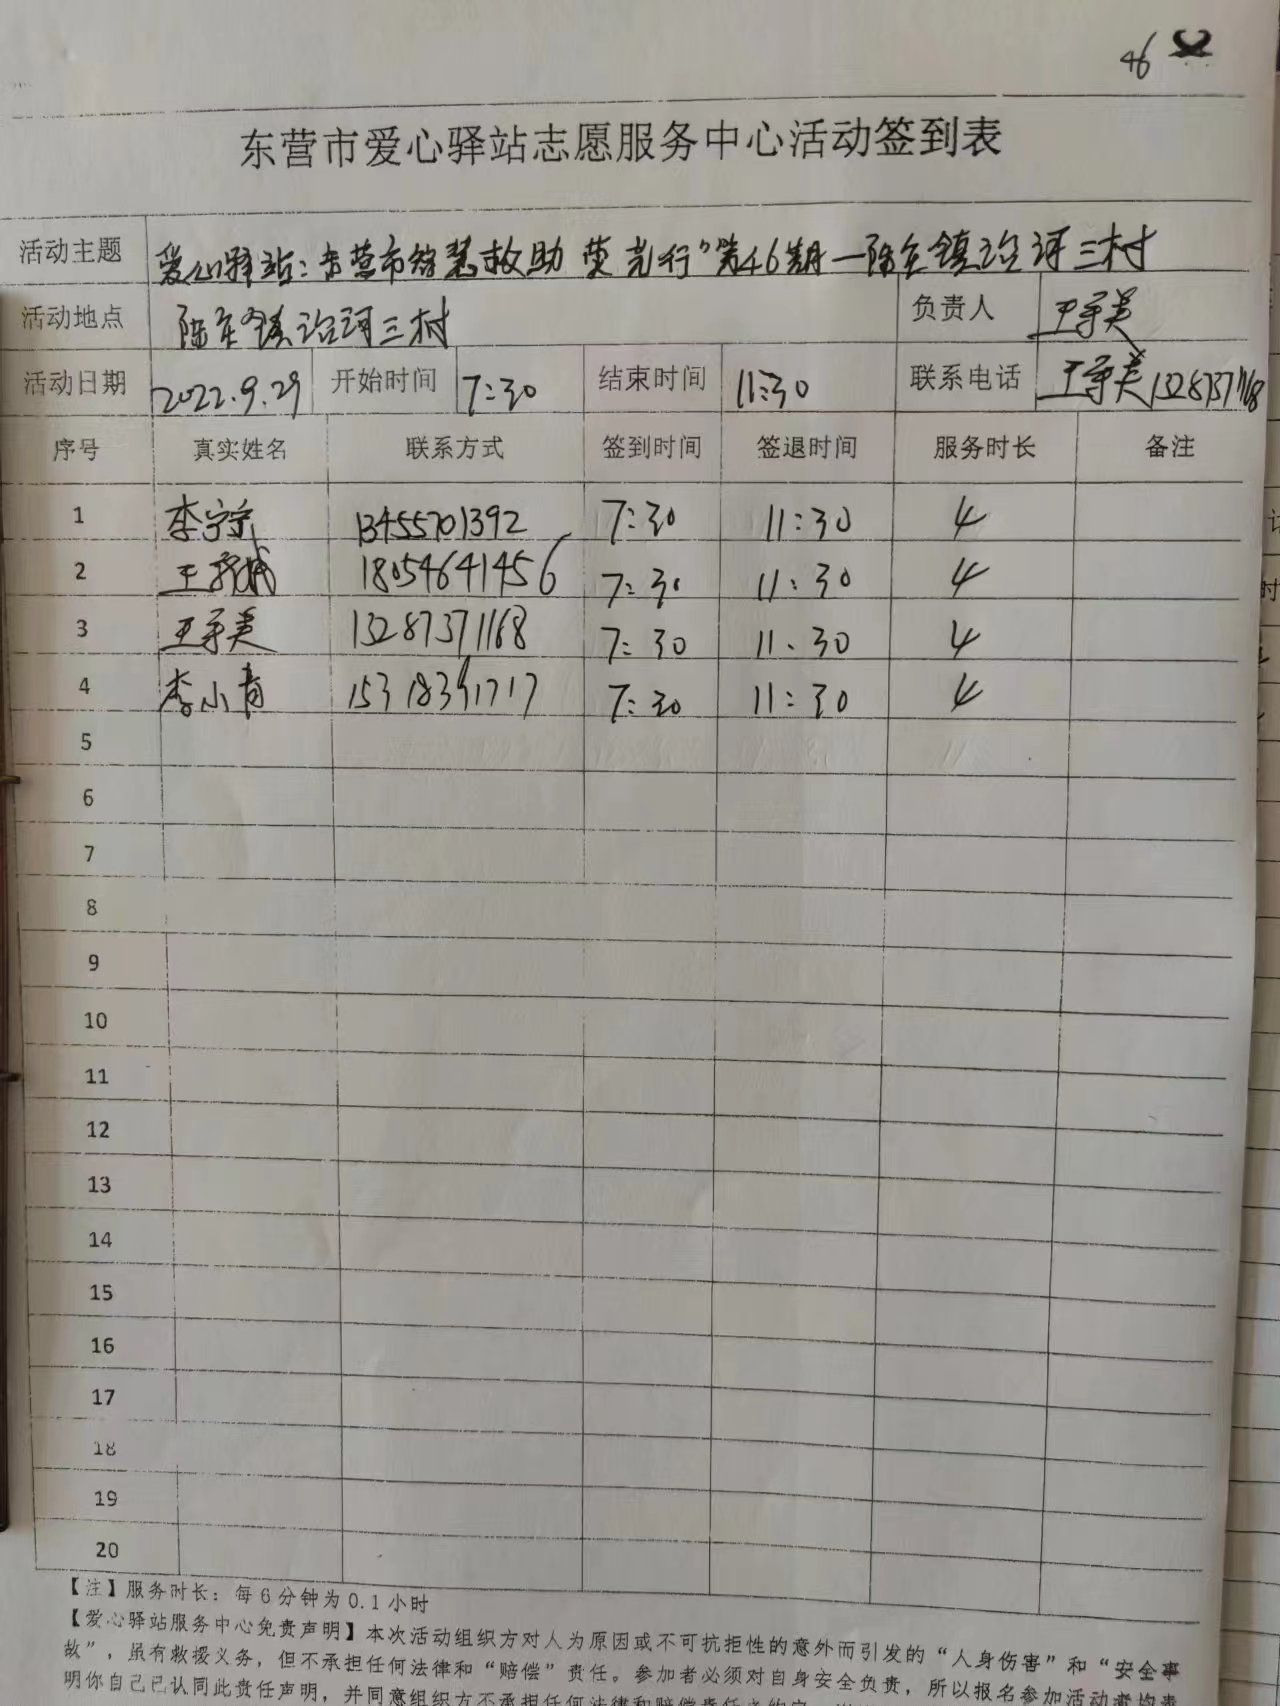 46
东营市爱心驿站志愿服务中心活动签到表
活动主题 爱心驿站:东营市智慧救助 荧光行"第46期一陈庄镇治河三村
活动地点 陈庄镇治河三村 负责人 王承美
活动日期 2022.9.29 开始时间 7:30 结束时间 11:30 联系电话 王承美13287371168
序号 真实姓名 联系方式 签到时间 签退时间 服务时长 备注
1 李宁宁 13455701392 7:30 11:30 4
2 王 18054641456 7:30 11:30 4
3 王承美 13287371168 7:30 11:30 4
4 李小青 15318341717 7:30 11:30 4
5
6
7
8
9
10
11
12
13
14
15
16
17
18
19
20
【注】服务时长:每6分钟为0.1小时
【爱心驿站服务中心免责声明】本次活动组织方对人为原因或不可抗拒性的意外而引发的“人身伤害”和“安全事
故”,虽有救援义务,但不承担任何法律和“赔偿”责任。参加者必须对自身安全负责,所以报名参加活动者均表
明你自己已认同此责任声明,并同意组织方不承担任何法律和赔偿责任之约定